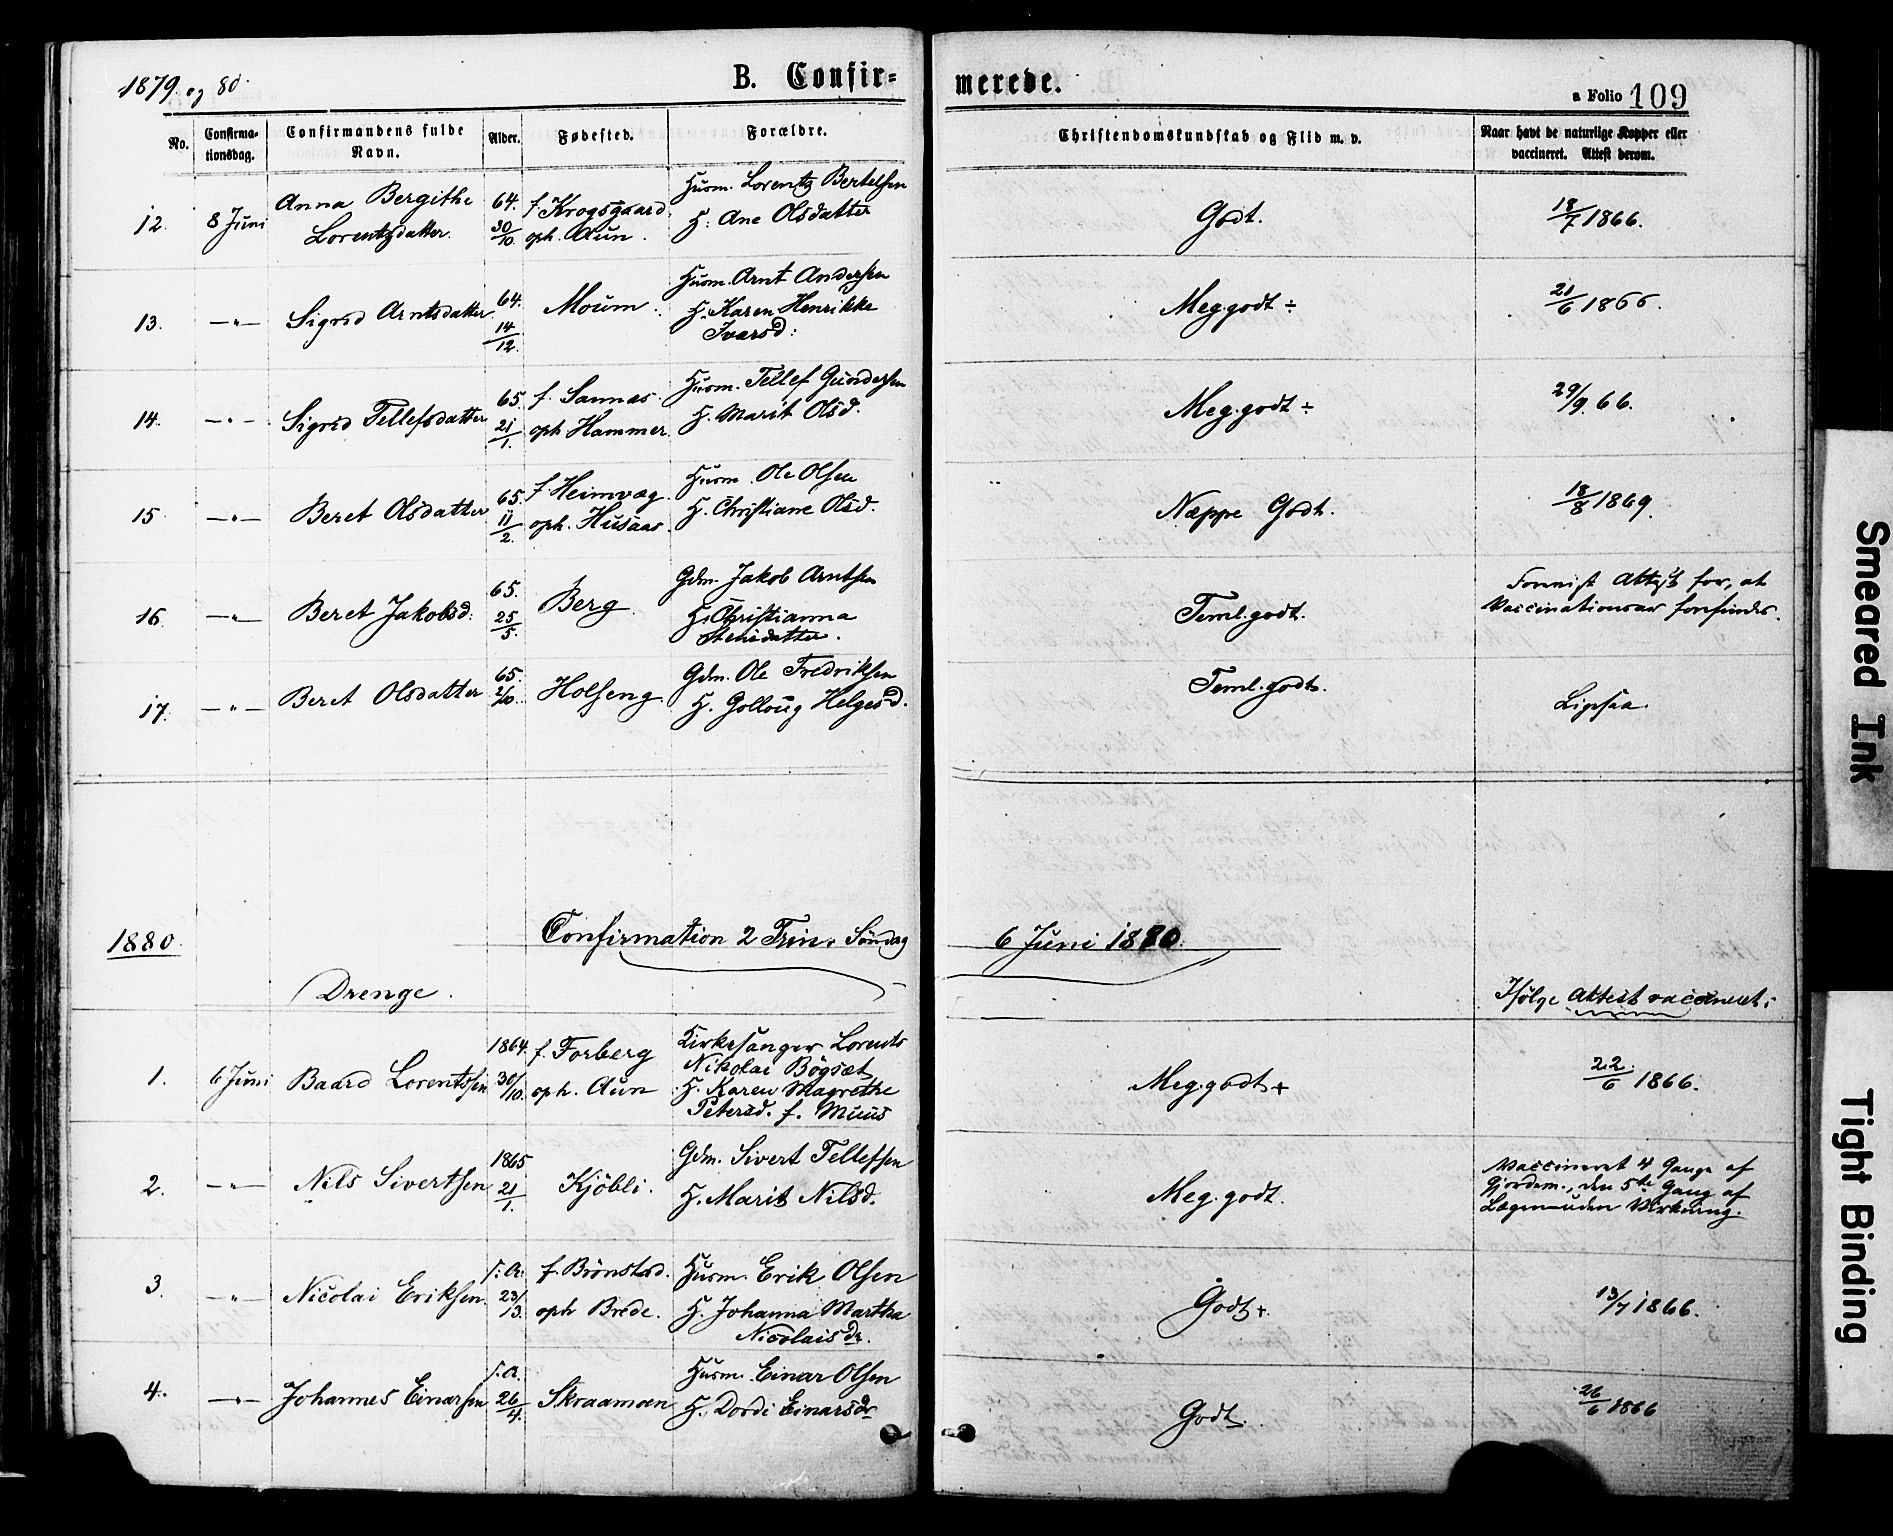 1879 og 80.
B. Confir=
merede.
a Folio 109
No.
Confirma-
tionsdag.
Confirmandens fulde
Navn.
Alder.
Fødested.
Forældre.
Christendomskundskab og Flid m. v.
Naar havt de naturlige Kopper eller
vaccineret. Attest derom.
12. 8 Juni Anna Bergithe
Lorentzdatter. 64.
30/10 f. Krogsgaard
oph. Aun. Husm. Lorentz Bertelsen
H. Ane Olsdatter Godt. 18/7 1866.
13. —"— Sigrid Arntsdatter 64.
14/12. Moum. Husm. Arnt Andersen
H. Karen Henrikke
Ivarsd: Meg.godt ÷ 21/6 1866.
14. —"— Sigrid Tellefsdatter 65.
21/1. f. Sannas.
oph Hammer. Husm. Tellef Gundersen
H. Marit Olsd. Meg.godt ÷ 29/9. 66.
15 —"— Beret Olsdatter 65.
11/2. f. Heimvæg
oph. Husaas. Husm. Ole Olsen
H. Christiane Olsd. Næppe Godt. 18/8 1869.
16. —"— Beret Jakobsd: 65.
25/5. Berg. Gdm. Jakob Arntsen
H. Christianna
Teml.godt. for, at
Vaccinationsar forefindes.
17. —"— Beret Olsdatter 65.
2/10. Holseng. Gdm. Ole Fredriksen
H. Golloug Helgesd. Teml.godt. Ligesaa.
1880. Confirmation 2 Trin. Søndag 6 Juni 1880.
Drenge.
Ifølge Attest vaccineret:
1. 6 Juni Baard Lorentssen 1864
30/10. f. Forberg
oph. Aun Kirkesanger Lorents
Nikolai Bøgset
H. Karen Magrethe
Petersd. f. Muus Meg.godt + 22/6 1866.
2. —"— Nils Sivertsen 1865
21/1. Kjøbli. Gdm. Sivert Tellefsen
H. Marit Nilsd. Meg.godt. Vaccineret 4 Gange af
Gjordem., den 5te Gang af
Lægen uden Virkning.
3. —"— Nicolai Eriksen. S. A.
23/3. f. Brønstad.
oph Brede. Husm. Erik Olsen
H. Johanna Martha
Nicolaisdr. Godt + 13/7 1866.
4. —"— Johannes Einarsen S. A.
26/4. Skraamoen Husm. Einar Olsen
H. Dordi Einarsdr Godt. 26/6 1866
Smeared Ink
Tight Binding